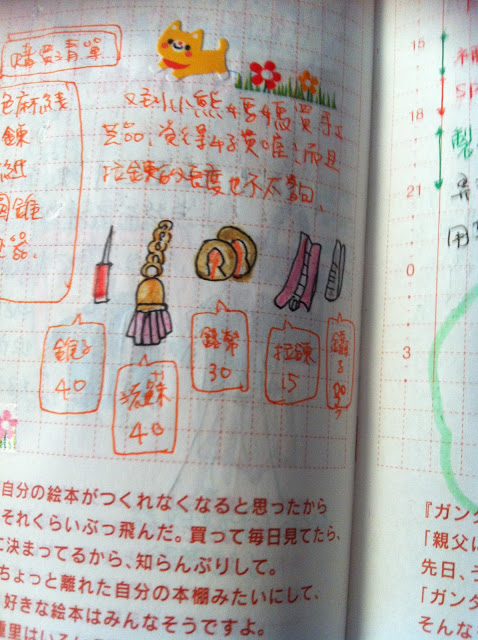 購買清單
色麻線
鍊
紙
圓錐
又到小小熊媽媽買手工
芸品,覺得好貴喔!而且
拉鍊的長度也不太夠、
錐子
40
流蘇
40
30
拉鍊
15
鑷
子
30
自分の絵本がつくれなくなると思ったから
それくらいぶっ飛んだ。買って毎日見てたら、
に決まってるから、知らんぷりして。
ちょっと離れた自分の本棚みたいにして、
好きな絵本はみんなそうですよ。
15
18
21
0
3
製
用
『ガンダ
「親父に
先日、
「ガンダ
そんな